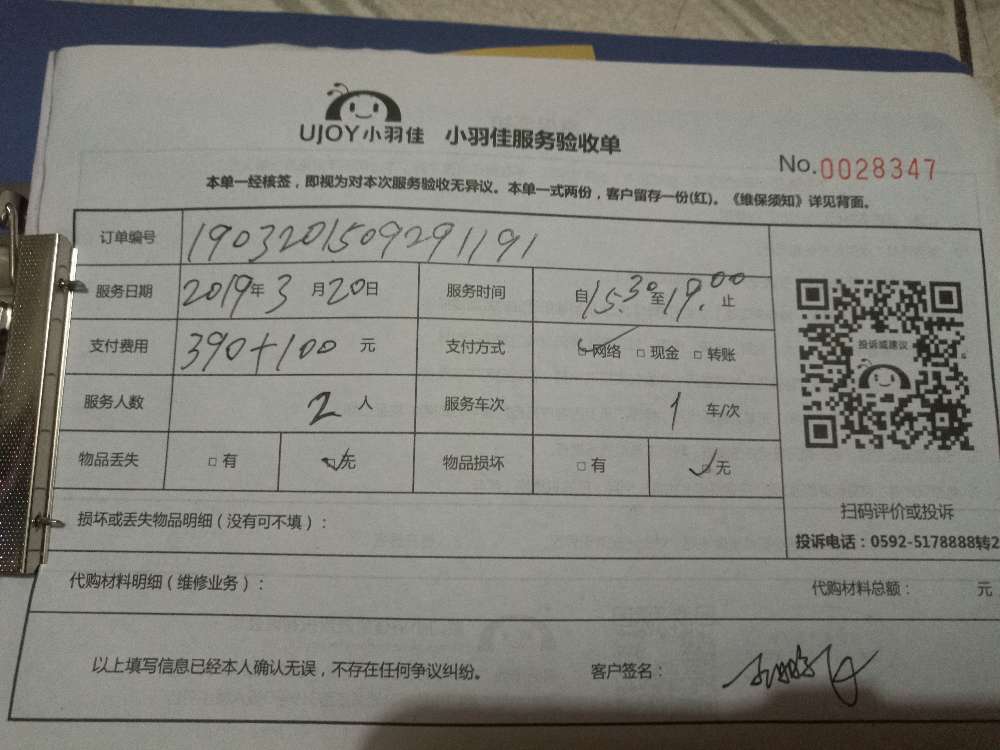 UJOY小羽佳 小羽佳服务验收单
No.0028347
本单一经核签，即视为对本次服务验收无异议。本单一式两份，客户留存一份(红)。《维保须知》详见背面。
订单编号 1903201509291191
服务日期 2019年3月20日 服务时间 自15:30至19:00止
支付费用 390+100 元 支付方式 ☑网络 □现金 □转账
服务人数 2人 服务车次 1车/次
物品丢失 □有 ☑无 物品损坏 □有 ☑无
投诉或建议
扫码评价或投诉
投诉电话：0592-5178888转2
损坏或丢失物品明细（没有可不填）：
代购材料明细（维修业务）： 代购材料总额： 元
以上填写信息已经本人确认无误，不存在任何争议纠纷。 客户签名：